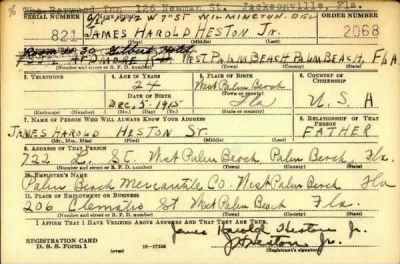 The Haywood Inn 126 Newman St. Jacksonville, Fla.
SERIAL NUMBER
W 7th ST WILMINGTON, DEL
821 JAMES HAROLD HESTON JR. 2068
(Last)
ORDER NUMBER
WEST PALM BEACH PALM BEACH, FLA
(Town) (County) (State)
2. TELEPHONE
3. AGE IN YEARS
24
4. PLACE OF BIRTH
West Palm Beach
5. COUNTRY OF CITIZENSHIP
DATE OF BIRTH
Dec. 5 1915
(Town or county)
Fla
U. S. A
(Exchange) (Number)
(Mo.) (Day) (Yr.)
(State or country)
7. NAME OF PERSON WHO WILL ALWAYS KNOW YOUR ADDRESS
8. RELATIONSHIP OF THAT PERSON
JAMES HAROLD HESTON Sr.
FATHER
(Mr., Mrs., Miss) (First) (Middle) (Last)
9. ADDRESS OF THAT PERSON
722 L. St. West Palm Beach Palm Beach, Fla.
(Number and street or R. F. D. number) (Town) (County) (State)
10. EMPLOYER'S NAME
Palm Beach Mercantile Co. West Palm Beach Fla
11. PLACE OF EMPLOYMENT OR BUSINESS
206 Clematis St West Palm Beach Fla.
(Number and street or R. F. D. number) (Town) (County) (State)
I AFFIRM THAT I HAVE VERIFIED ABOVE ANSWERS AND THAT THEY ARE TRUE.
James Harold Heston Jr.
REGISTRATION CARD
D. S. S. Form 1
16-17105
J H Heston Jr.
(Registrant's signature)